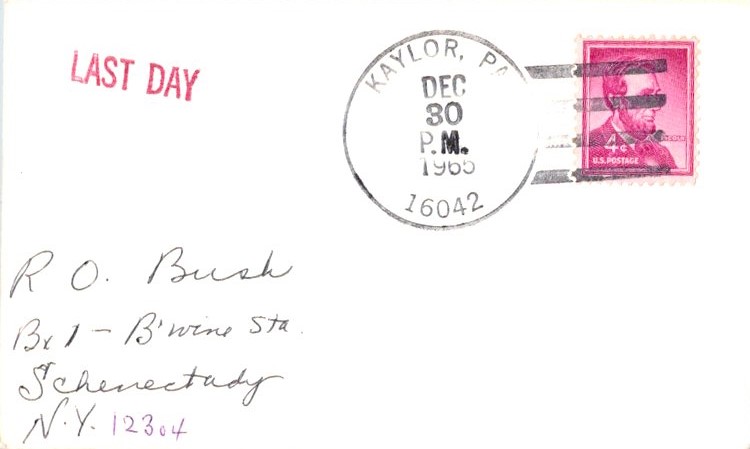 LAST DAY
KAYLOR, PA
DEC
30
P.M.
1965
16042
LINCOLN
4¢
U.S. POSTAGE
R O. Bush
Bx 1 - B'wine Sta.
Schenectady
N.Y. 12304